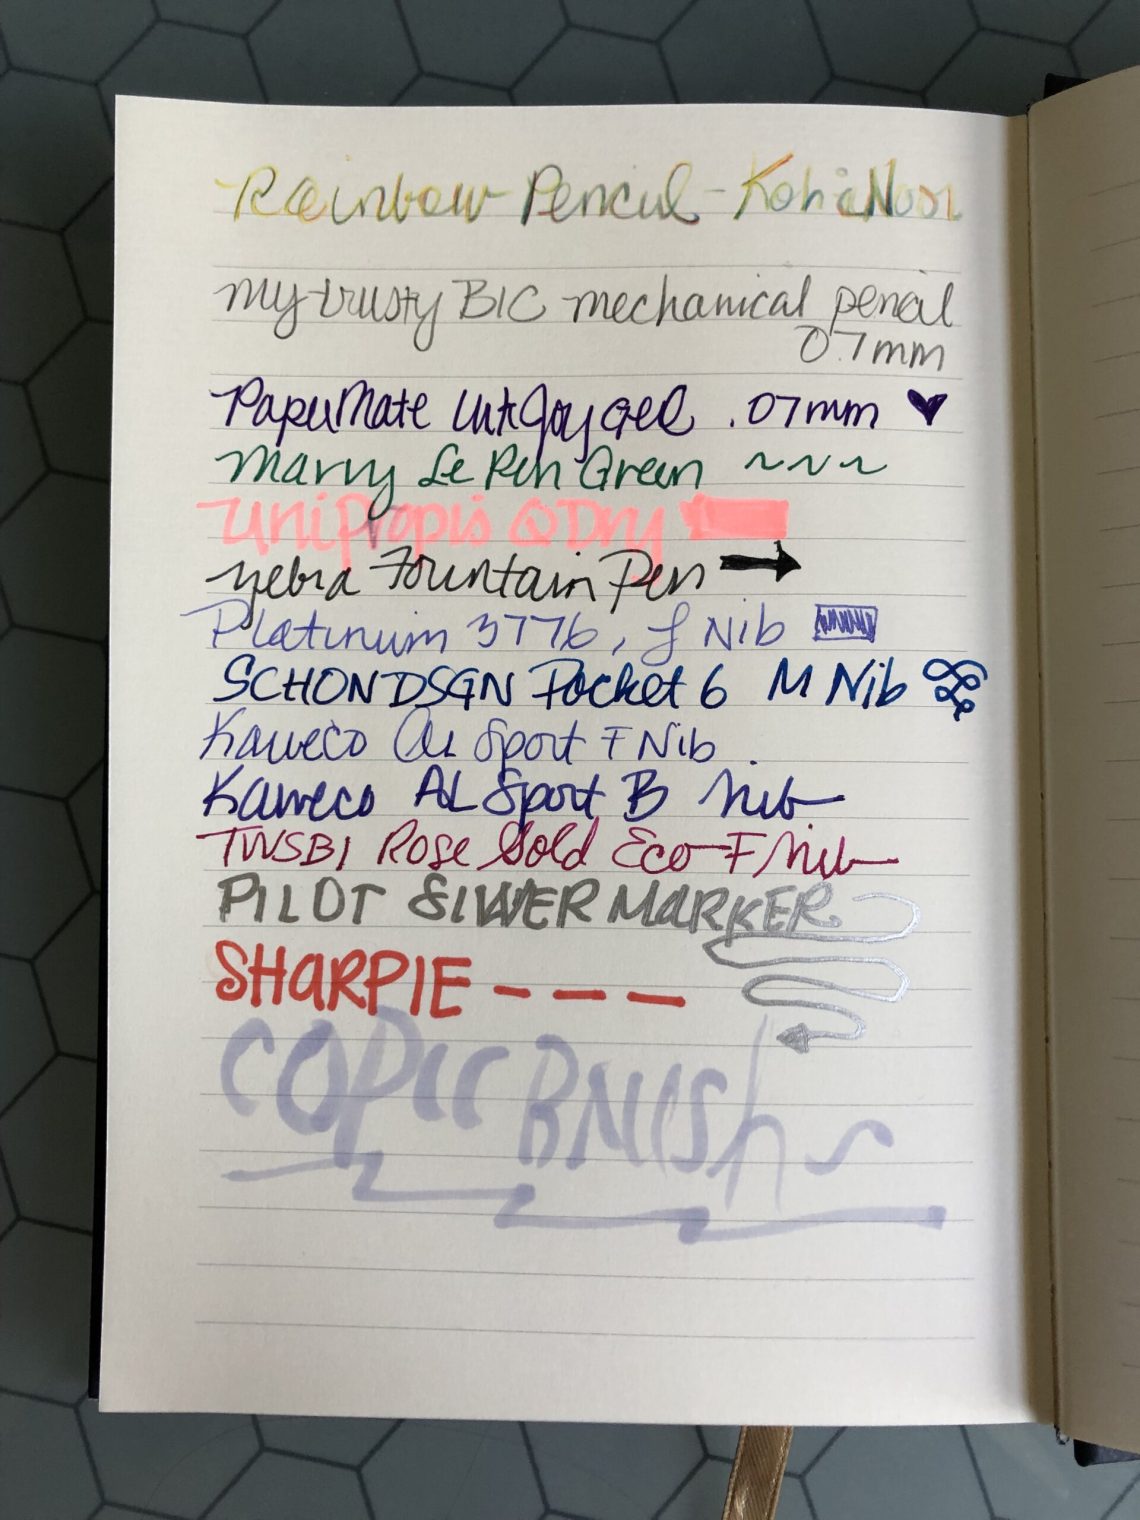 Rainbow Pencil - KohiNoor
My trusty BIC mechanical pencil
0.7mm
PaperMate InkJoy Gel .07mm
Marvy Le Pen Green
UniPropis QDry
Zebra Fountain Pen
Platinum 3776, f Nib
SCHON DSGN Pocket 6 M Nib
Kaweco AL Sport F Nib
Kaweco AL Sport B Nib
TWSBI Rose Gold Eco - F Nib
PILOT SILVER MARKER
SHARPIE - - -
COPIC BRUSH